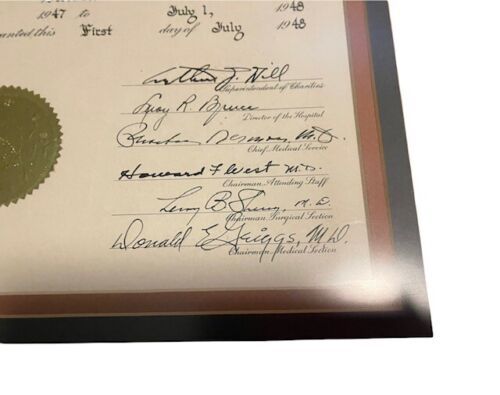 1947 to July 1, 1948
this First day of July 1948
Arthur J. Will
Superintendent of Charities
Leroy R. Bruce
Director of the Hospital
M.D.
Chief Medical Service
Howard F West M.D.
Chairman Attending Staff
Leroy B Sherry, M.D.
Chairman Surgical Section
Donald E Griggs, M.D.
Chairman Medical Section